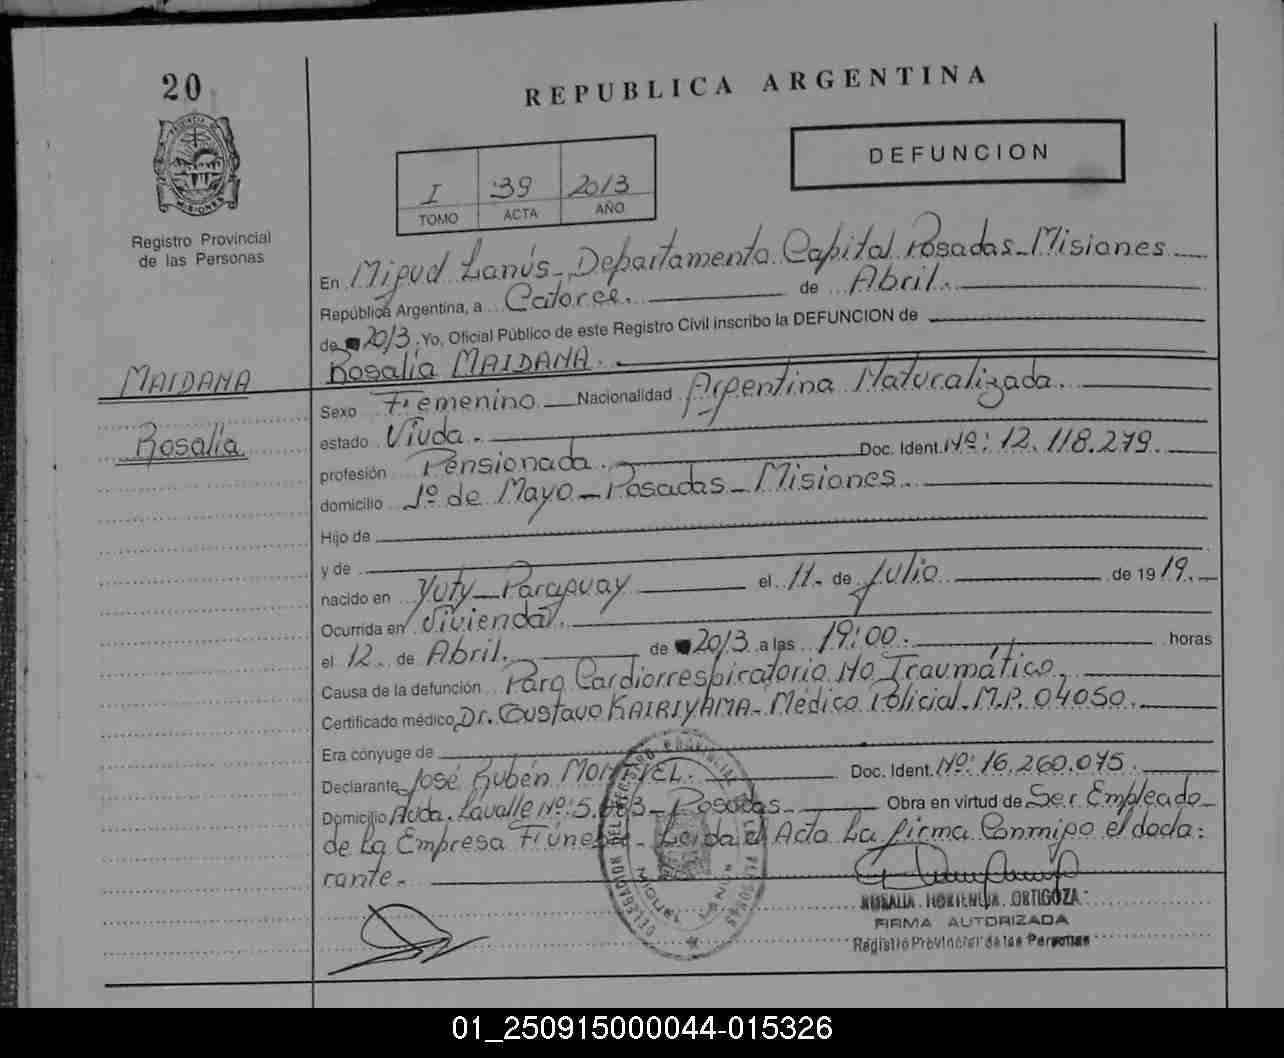 20
REPUBLICA ARGENTINA
DEFUNCION
I 39 2013
TOMO ACTA AÑO
PROVINCIA DE MISIONES
Registro Provincial
de las Personas
En Miguel Lanús - Departamento Capital Posadas - Misiones
República Argentina, a Catorce. de Abril.
de 2013. Yo, Oficial Público de este Registro Civil inscribo la DEFUNCION de
Rosalia MAIDANA.
MAIDANA
Rosalia
Sexo Femenino Nacionalidad Argentina Naturalizada.
estado Viuda.
profesión Pensionada. Doc. Ident. Nº: 12.118.279.
domicilio 1º de Mayo - Posadas - Misiones.
Hijo de
y de
nacido en Yuty - Paraguay el 11. de Julio de 1919.
Ocurrida en Vivienda.
el 12. de Abril. de 2013 a las 19:00. horas
Causa de la defunción Paro Cardiorrespiratorio NO Traumático.
Certificado médico Dr. Gustavo KAIRIYAMA - Médico Policial - M.P. 04050.
Era cónyuge de
Declarante José Rubén Doc. Ident. Nº: 16.260.075.
Domicilio Avda. Lavalle Nº: - Posadas - Obra en virtud de Ser Empleado
de La Empresa Fúnebre - Leida el Acta La firma Conmigo el decla:
rante.
ROSALIA HORTENCIA ORTIGOZA
FIRMA AUTORIZADA
Registro Provincial de las Personas
01_250915000044-015326